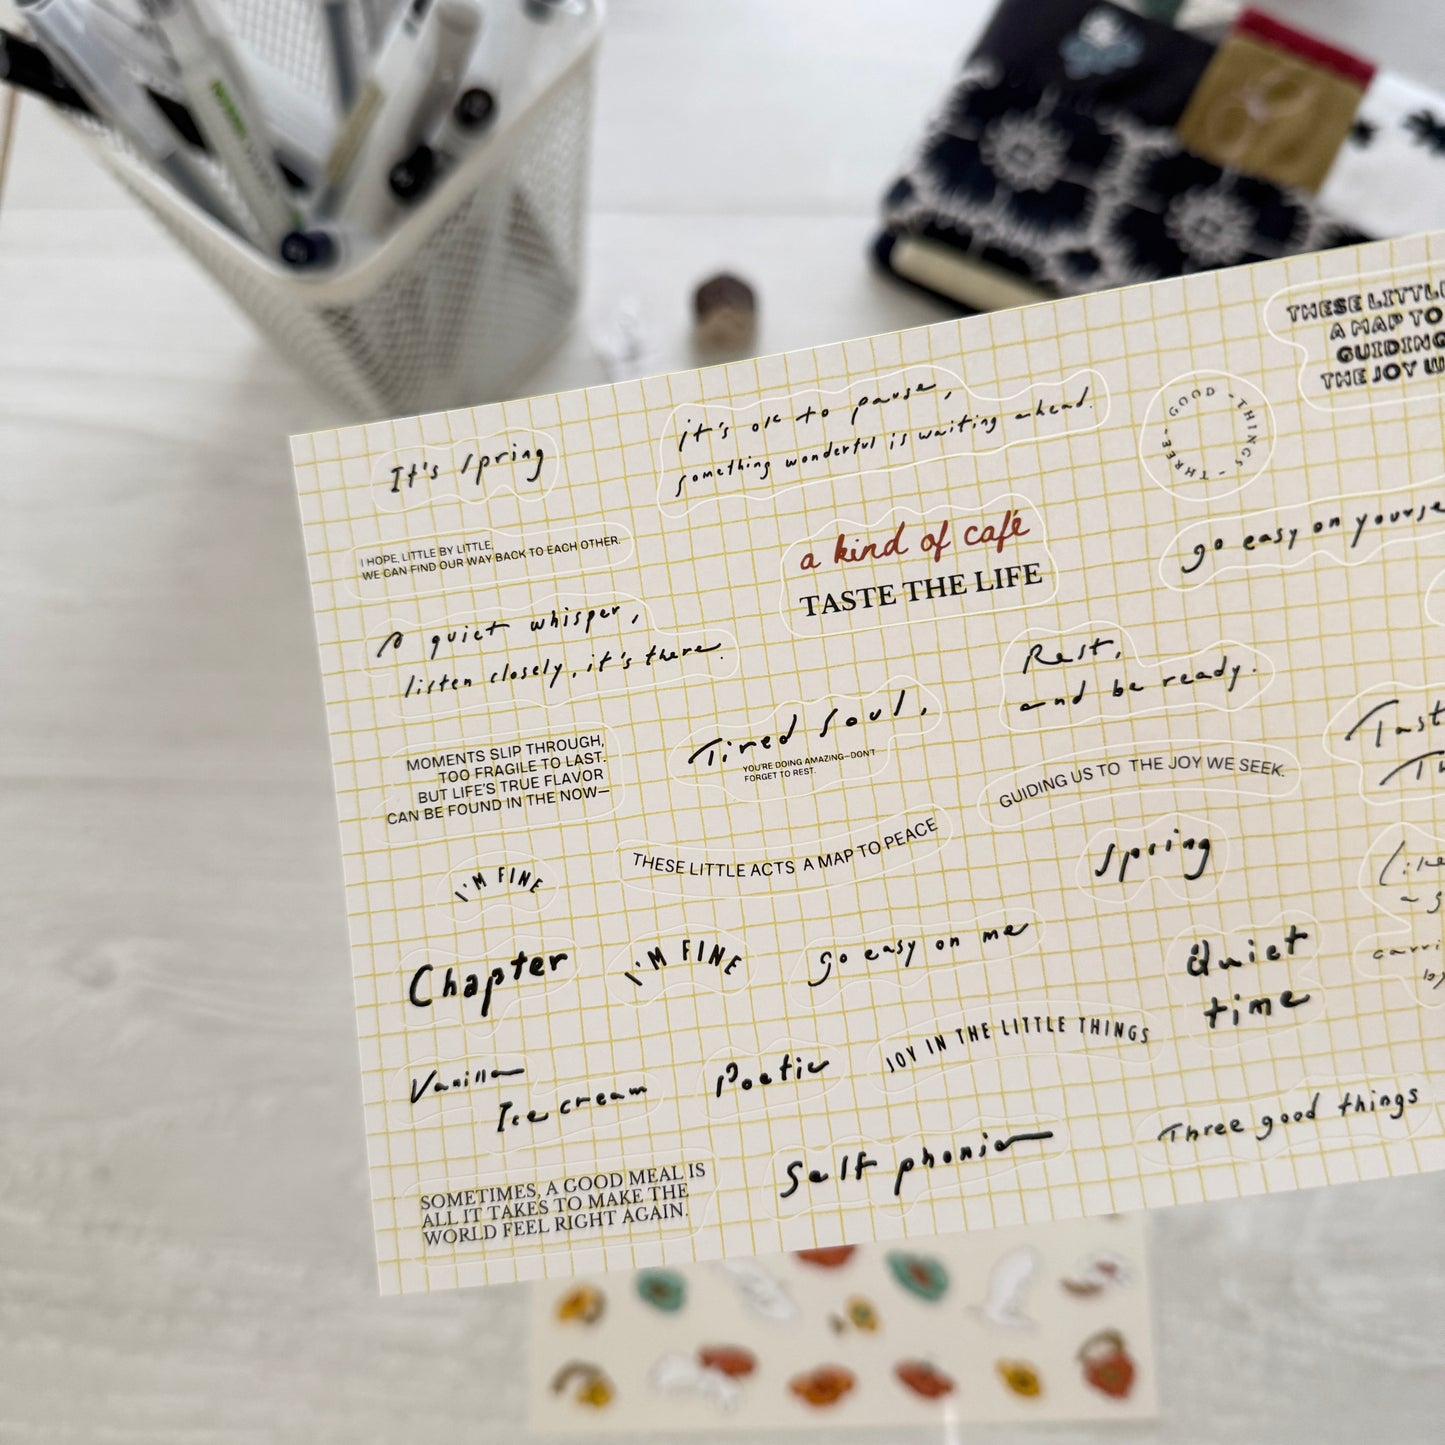 It's spring
it's ok to pause,
something wonderful is waiting ahead.
THREE - GOOD - THINGS -
THESE LITTLE
A MAP TO
GUIDING
THE JOY W
I HOPE, LITTLE BY LITTLE,
WE CAN FIND OUR WAY BACK TO EACH OTHER.
a kind of café
TASTE THE LIFE
go easy on yourse
A quiet whisper,
listen closely, it's there.
Rest,
and be ready.
MOMENTS SLIP THROUGH,
TOO FRAGILE TO LAST.
BUT LIFE'S TRUE FLAVOR
CAN BE FOUND IN THE NOW—
Tired soul,
YOU'RE DOING AMAZING—DON'T
FORGET TO REST.
GUIDING US TO THE JOY WE SEEK.
Tast
I'M FINE
THESE LITTLE ACTS A MAP TO PEACE
Spring
Chapter
I'M FINE
go easy on me
Quiet
time
Vanilla
Ice cream
Poetic
JOY IN THE LITTLE THINGS
SOMETIMES, A GOOD MEAL IS
ALL IT TAKES TO MAKE THE
WORLD FEEL RIGHT AGAIN.
Self phonic
Three good things